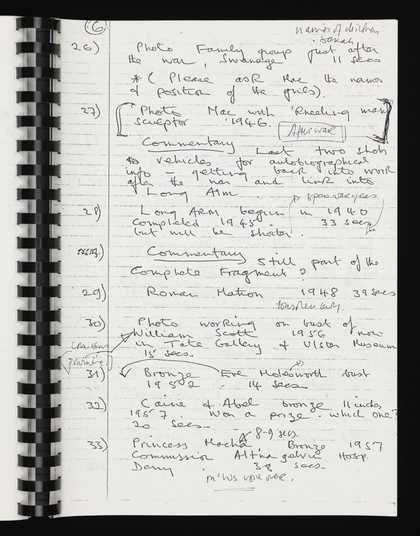 6
names of children
26) Photo Family group just after
the war, Swanage 11 secs
*( Please ask Mac the names
& position of the girls).
27) [Photo Mac with 'Kneeling man'
sculptor '1946.
After war
Commentary Last two shots
vehicles for autobiographical
info – getting back into work
after the war and link into
Long Arm.
28) Long Arm begun in 1940
completed 1945. 33 secs
but will be shorter.
Commentary Still part of the
Complete Fragment?
29) Roman Matron 1948 39 secs
30) Photo working on bust of
William Scott 1956 now
in Tate Gallery & Ulster Museum
15 secs.
31) Bronze Eve Molesworth bust
1952 14 secs
32) Caine & Abel bronze 11 ins
1957 Won a prize - which one?
20 secs.
8-9 secs
33) Princess Macha Bronze 1957
Commission Altnagelvin Hosp.
Derry. 38 secs.